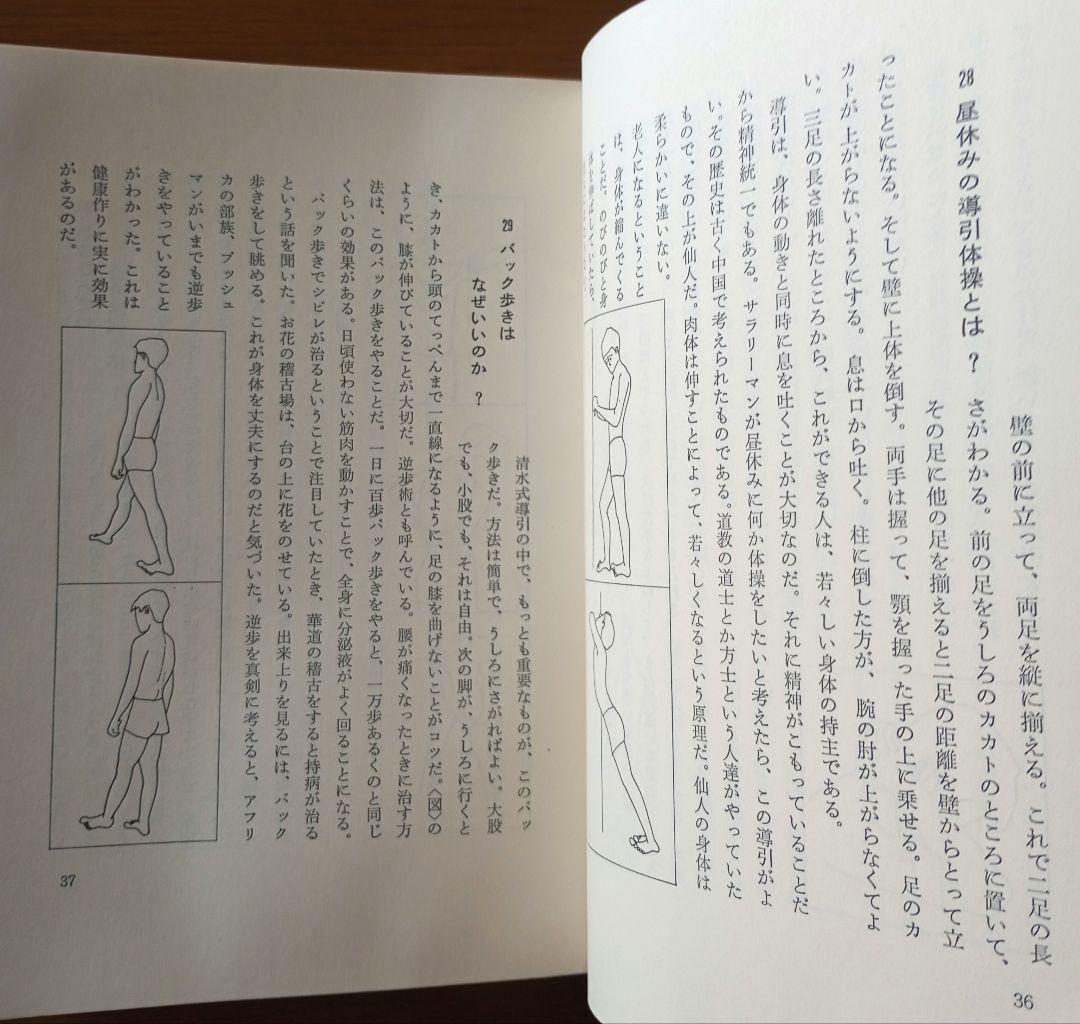 28 昼休みの導引体操とは？
壁の前に立って、両足を縦に揃える。これで二足の長
さがわかる。前の足をうしろのカカトのところに置いて、
その足に他の足を揃えると二足の距離を壁からとって立
ったことになる。そして壁に上体を倒す。両手は握って、顎を握った手の上に乗せる。足のカ
カトが上がらないようにする。息は口から吐く。柱に倒した方が、腕の肘が上がらなくてよ
い。三足の長さ離れたところから、これができる人は、若々しい身体の持主である。
導引は、身体の動きと同時に息を吐くことが大切なのだ。それに精神がこもっていることだ
から精神統一でもある。サラリーマンが昼休みに何か体操をしたいと考えたら、この導引がよ
い。その歴史は古く中国で考えられたものである。道教の道士とか方士という人達がやっていた
もので、その上が仙人だ。肉体は伸すことによって、若々しくなるという原理だ。仙人の身体は
柔らかいに違いない。
老人になるということ
は、身体が縮んでくる
ことだ。のびのびと身
36
29 バック歩きは
なぜいいのか？
清水式導引の中で、もっとも重要なものが、このバッ
ク歩きだ。方法は簡単で、うしろにさがればよい。大股
でも、小股でも、それは自由。次の脚が、うしろに行くと
き、カカトから頭のてっぺんまで一直線になるように、足の膝を曲げないことがコツだ。〈図〉の
ように、膝が伸びていることが大切だ。逆歩術とも呼んでいる。腰が痛くなったときに治す方
法は、このバック歩きをやることだ。一日に百歩バック歩きをやると、一万歩あるくのと同じ
くらいの効果がある。日頃使わない筋肉を動かすことで、全身に分泌液がよく回ることになる。
バック歩きでシビレが治るということで注目していたとき、華道の稽古をすると持病が治る
という話を聞いた。お花の稽古場は、台の上に花をのせている。出来上りを見るには、バック
歩きをして眺める。これが身体を丈夫にするのだと気づいた。逆歩を真剣に考えると、アフリ
カの部族、ブッシュ
マンがいまでも逆歩
きをやっていること
がわかった。これは
健康作りに実に効果
があるのだ。
37